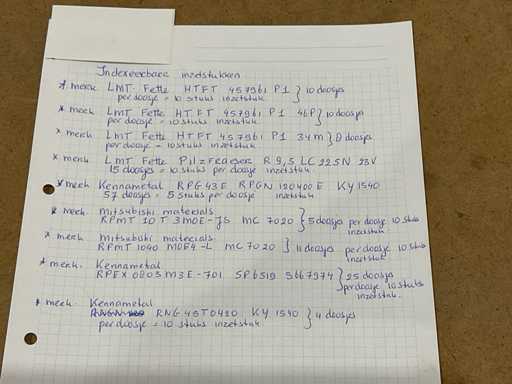 Indexeerbare inzetstukken
* merk LMT Fette HTFT 457961 P1 } 10 doosjes
per doosje = 10 stuks inzetstuk
* merk LMT Fette HTFT 457961 P1 46P } 10 doosjes
per doosje = 10 stuks inzetstuk
* merk LMT Fette HTFT 457961 P1 34m } 8 doosjes
per doosje = 10 stuks inzetstuk
* merk LMT Fette Pilzfräser R 9,5 LC 225N 23V
15 doosjes = 10 stuks per doosje inzetstuk
* merk Kennametal RPG43E RPGN 120400E KY1540
57 doosjes = 5 stuks per doosje inzetstuk
* merk mitsubishi materials
RPMT 10 T 3MOE-JS MC 7020 } 5 doosjes per doosje 10 stuks
inzetstuk
* merk mitsubishi materials
RPMT 1040 MOE4-L MC 7020 } 11 doosjes per doosje 10 stuks
inzetstuk
* merk. Kennametal
RPEX 0803M3E-701 SP6519 3667974 } 25 doosjes
per doosje 10 stuks
inzetstuk.
* merk. Kennametal
RNG 45T0420 KY 1540 } 4 doosjes
per doosje = 10 stuks inzetstuk